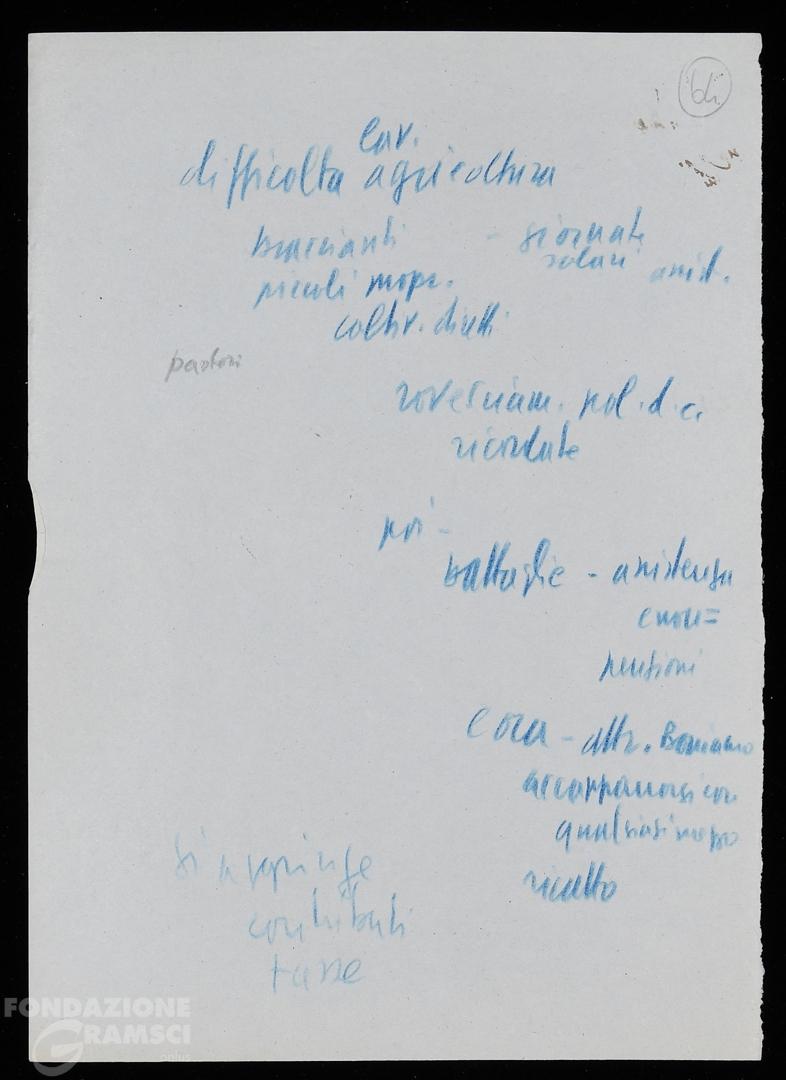 64
lav.
difficolta agricoltura
braccianti - giornate
salari assist.
piccoli propr.
coltiv. diretti
pastori
rovesciam. pol. d. c.
ricordate
noi -
battaglie - assistenza
pensioni
e ora - altr. Bonomi
accapparrarsi con
qualsiasi mezzo
ricatto
si aggiunge
contributi
tasse
FONDAZIONE
GRAMSCI
onlus